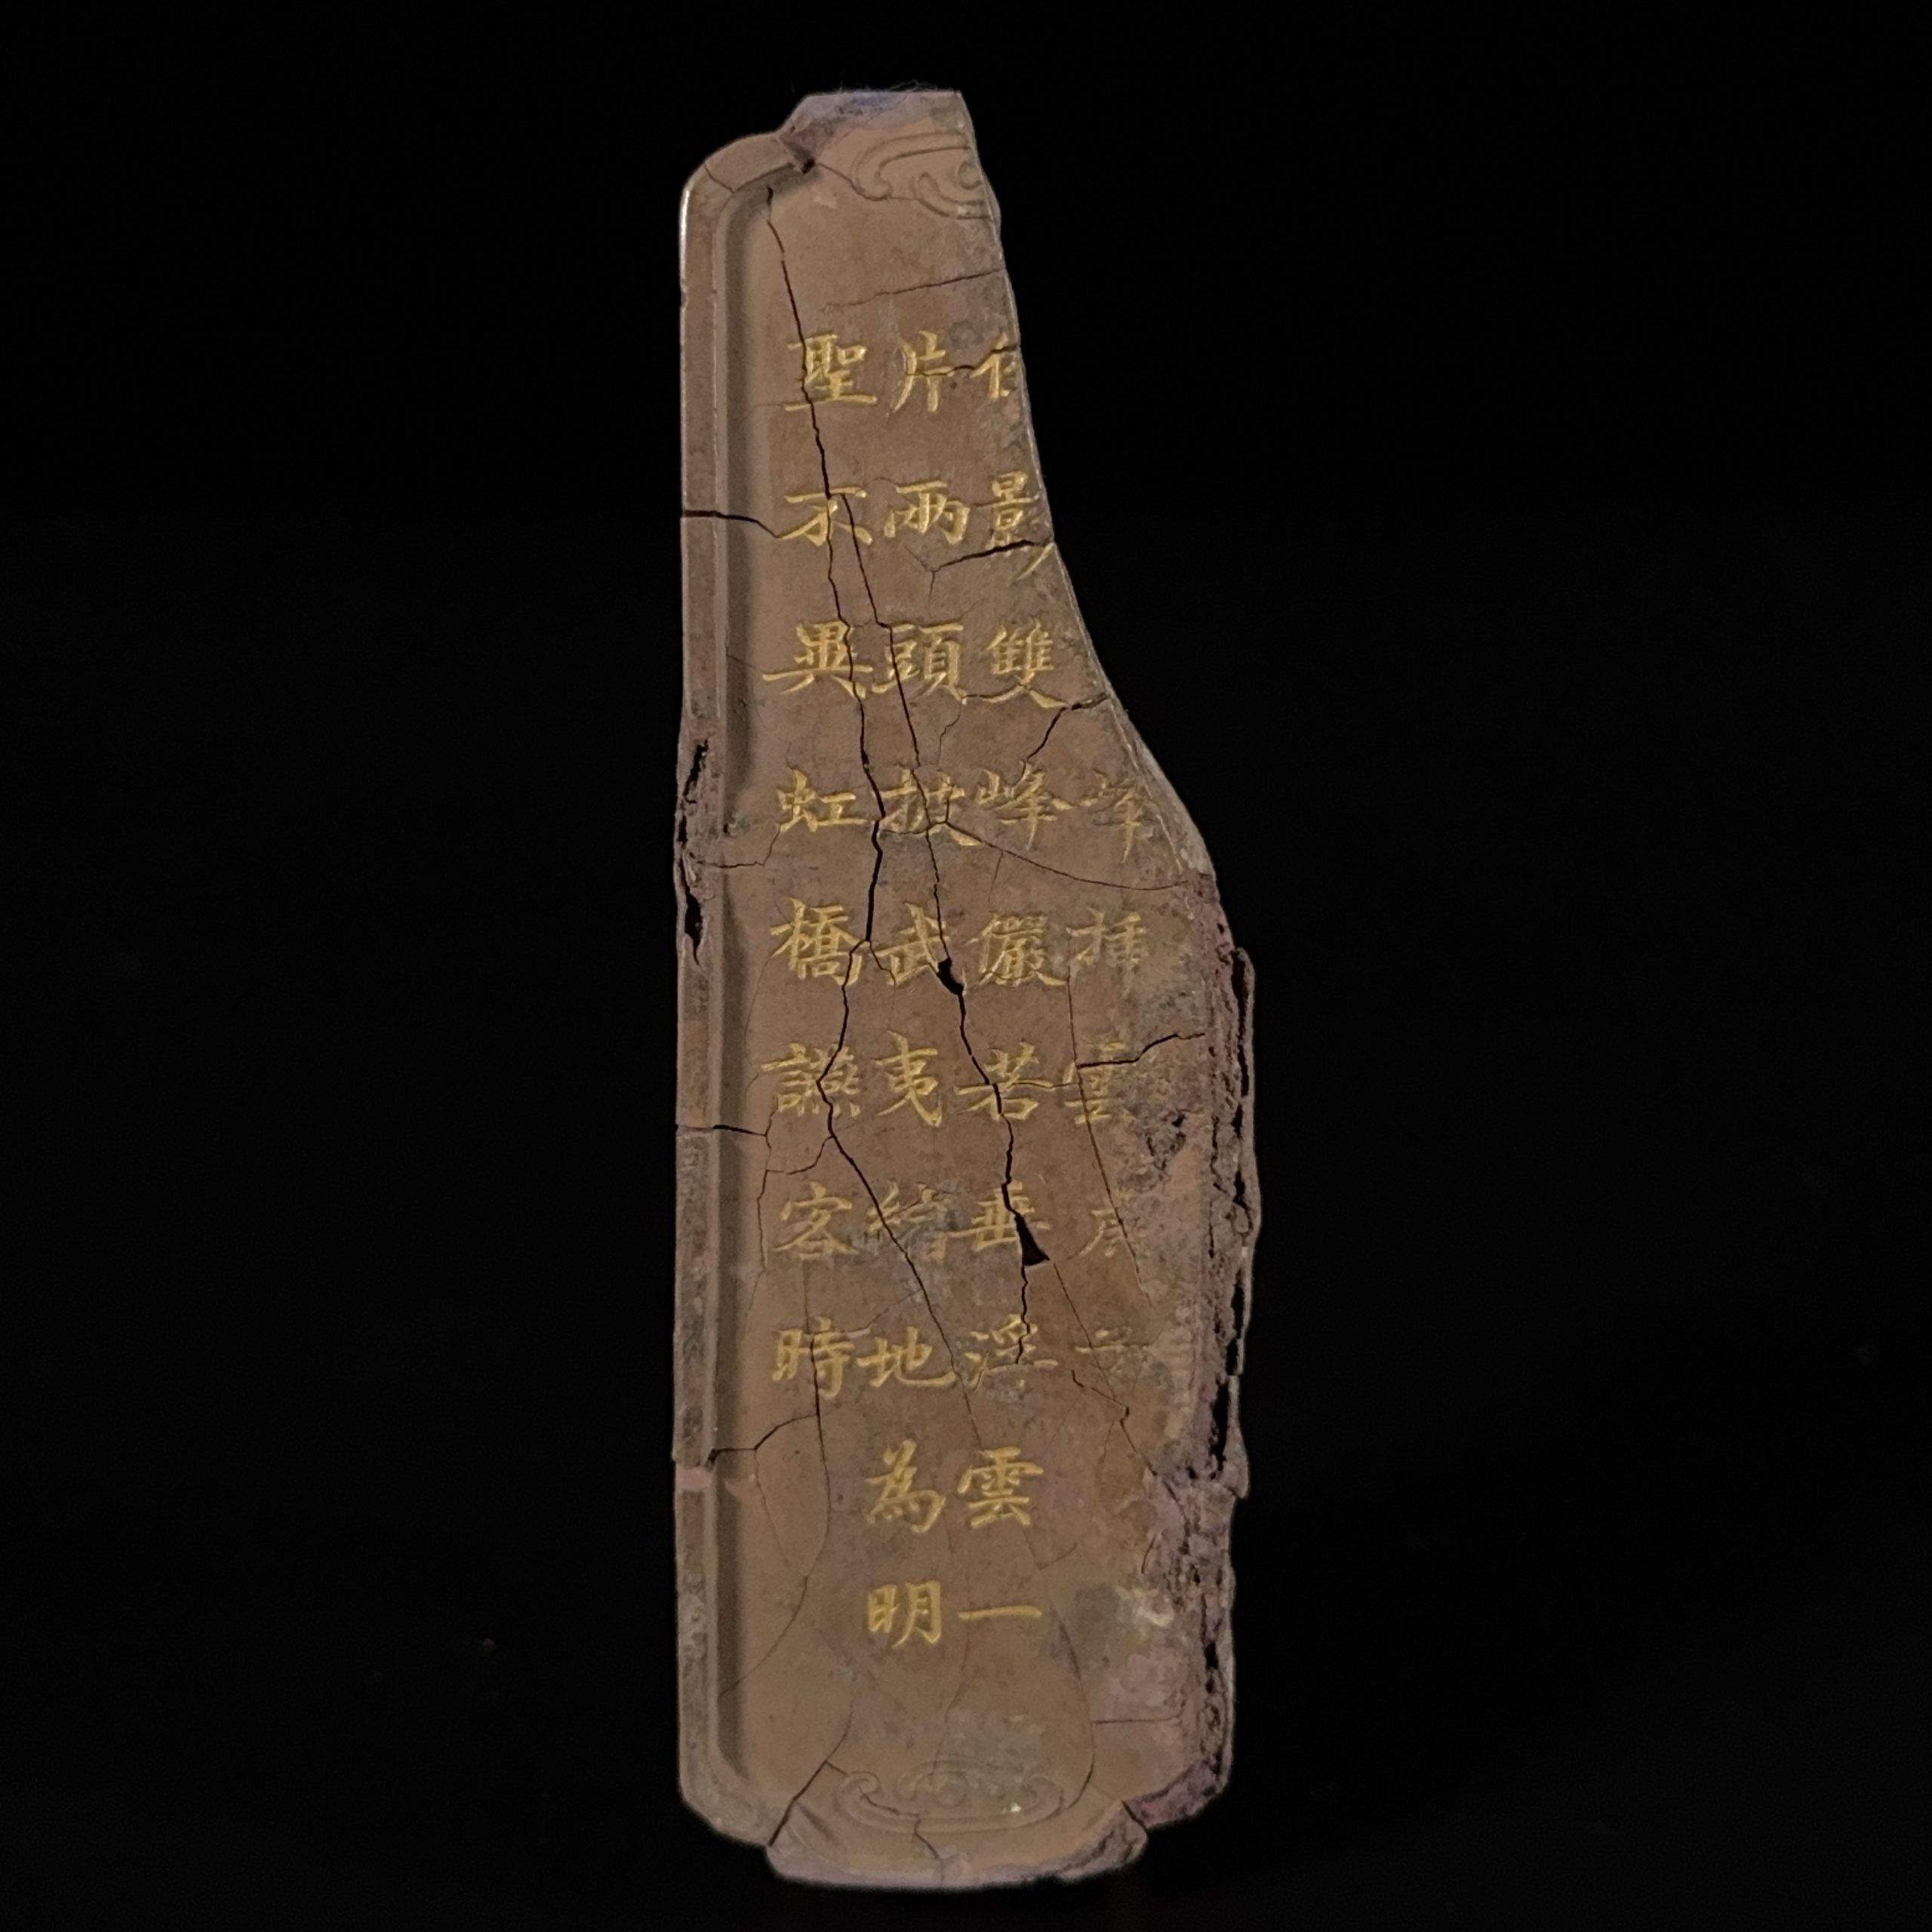 峰插雲
影雙峰儼若垂浮雲一
片兩頭披武夷地為明
聖不異虹橋讌客時